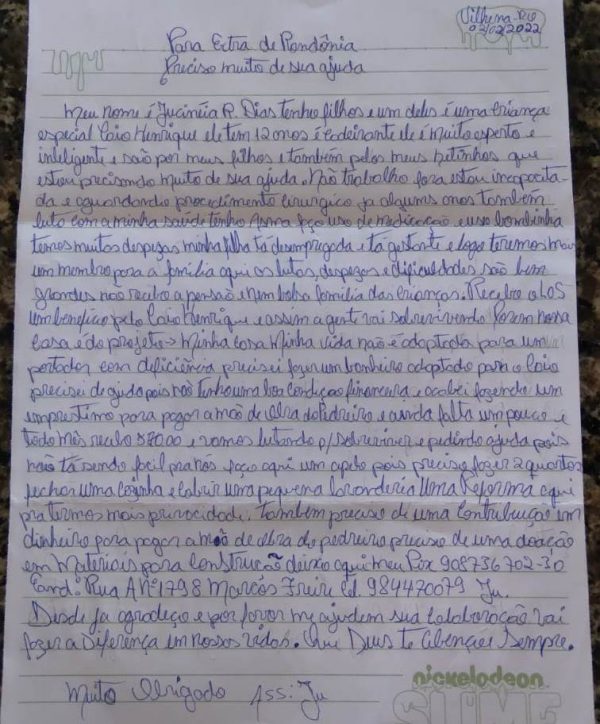 Vilhena-RO
02/02/2022
Para Extra de Rondônia
Preciso muito de sua ajuda
Meu nome é Jucinéia R. Dias tenho filhos e um deles é uma criança
especial Caio Henrique ele tem 12 anos é cadeirante ele é muito esperto e
inteligente e são por meus filhos e também pelos meus netinhos que
estou precisando muito de sua ajuda. Não trabalho fora estou incapacita-
da e aguardando procedimento cirurgico ja alguns anos também
luto com a minha saúde tenho Asma faço uso de medicação e uso bombinha
temos muitas despezas minha filha tá desempregada e tá gestante e logo teremos mais
um membro para a família aqui as lutas, despezas e dificuldades são bem
grandes não recebo a pensão e nem bolsa família das crianças. Recebo o LOS
um beneficio pelo Caio Henrique e assim a gente vai sobrevivendo Porem nossa
casa é do projeto → Minha Casa Minha vida não é adaptada para um
portador com deficiência precisei fazer um banheiro adaptado para o Caio
precisei de ajuda pois não tenho uma boa condição financeira e acabei fazendo um
emprestimo para pagar a mão de obra do Pedreiro e ainda falta um pouco e
todo mês recebo 580.00 e vamos lutando p/ sobreviver e pedindo ajuda pois
não tá sendo facil pra nós faço aqui um apelo pois preciso fazer 2 quartos
fechar uma cozinha e cobrir uma pequena lavanderia Uma Reforma aqui
pra termos mais privacidade. Também preciso de uma Contribuição em
dinheiro para pagar a mão de obra do pedreiro preciso de uma doação
em Materiais para Construção deixo aqui meu Pix 908736702-30
End: Rua A Nº 1798 Marcos Freire Cel. 984470079 Ju.
Desde já agradeço e por favor me ajudem sua Colaboração vai
fazer a Diferença em nossas vidas. Que Deus te Abençoe Sempre.
Muito Obrigado Ass: Ju
nickelodeon
SLIME